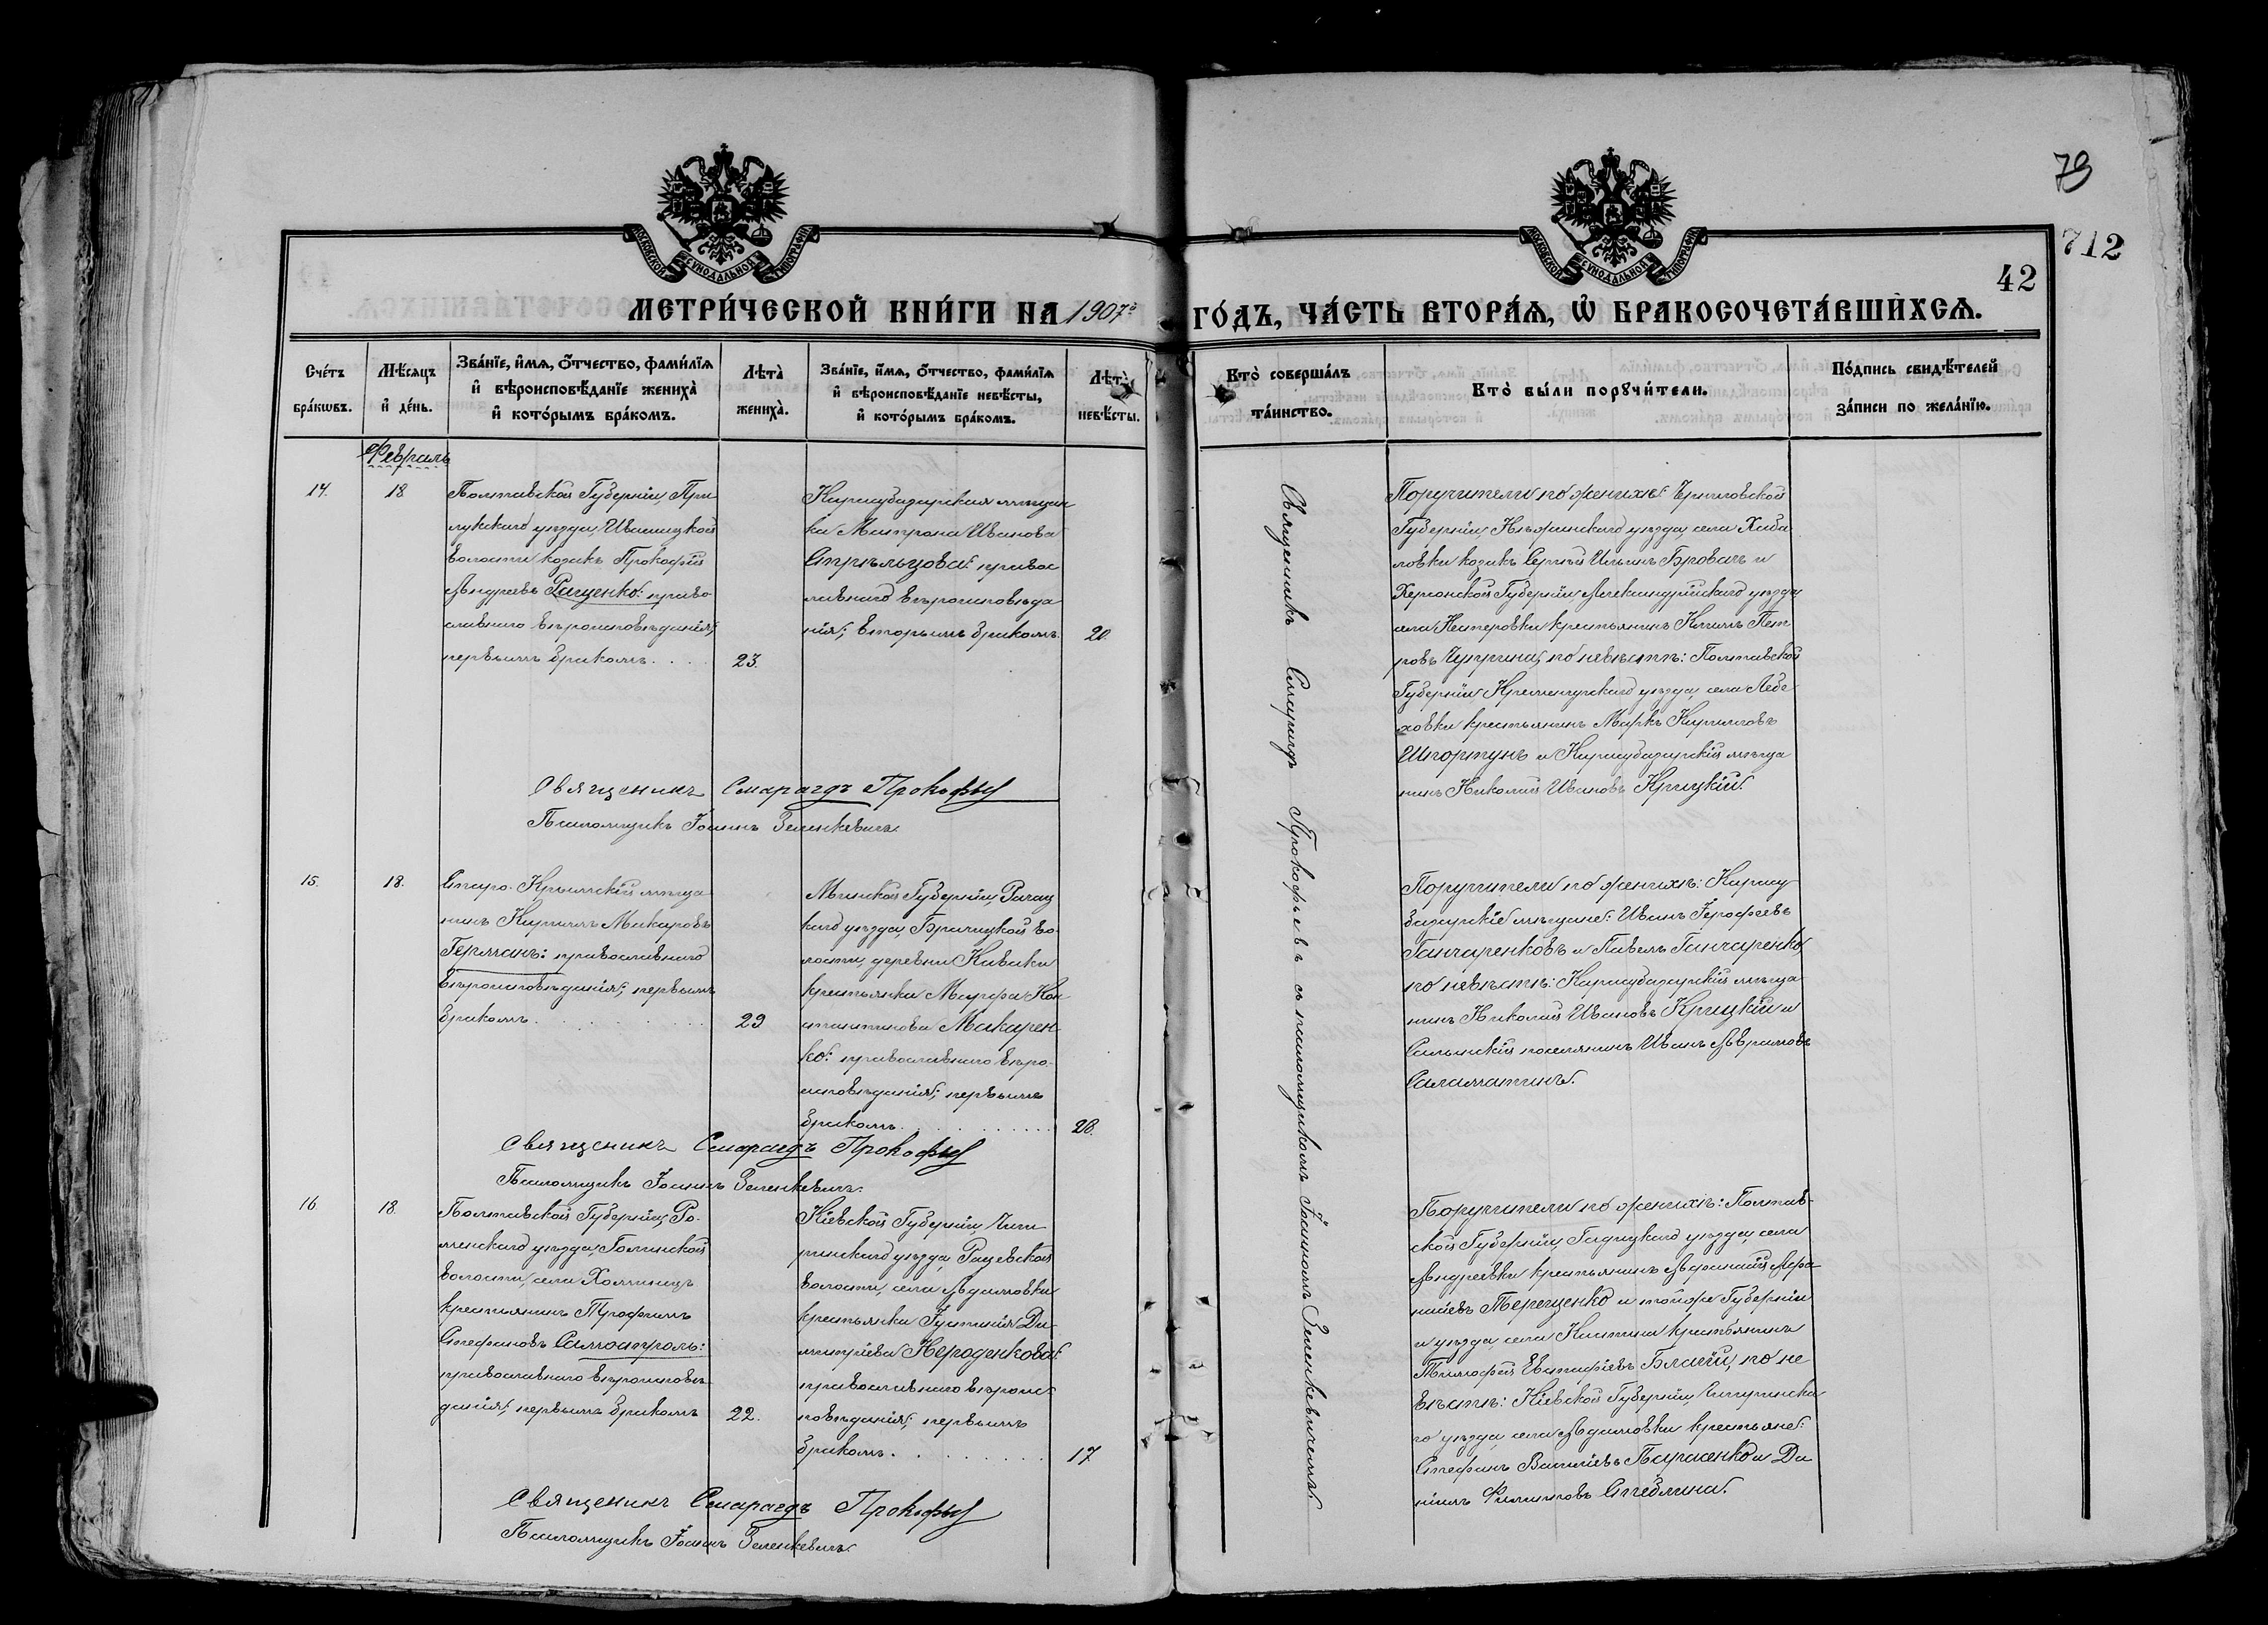 79
712
42
МОСКОВСКОЙ СѴНОДАЛЬНОЙ ТИПОГРАФІИ
МОСКОВСКОЙ СѴНОДАЛЬНОЙ ТИПОГРАФІИ
МЕТРИ́ЧЕСКОЙ КНИ́ГИ НА 1907й ГО́ДЪ, ЧА́СТЬ ВТОРА́Я, Ѡ БРАКОСОЧЕТА́ВШИХСЯ.
Сче́тъ
бра́кωвъ.
Мѣ́сяцъ
и де́нь.
Зва́нїе, и́мя, ѻ́тчество, фами́лїя
и вѣроисповѣ́данїе жениха̀
и кото́рымъ бра́комъ.
Лѣта̀
жениха̀.
Зва́нїе, и́мя, ѻ́тчество, фами́лїя
и вѣроисповѣ́данїе невѣ́сты,
и кото́рымъ бра́комъ.
Лѣта̀
невѣ́сты.
Кто̀ соверша́лъ
та́инство.
Кто̀ бы́ли порꙋчи́тели.
По́дпись свидѣ́телей
за́писи по жела́нїю.
Февраль
14.
18
Полтавской Губерніи, При
лукскаго уѣзда, Иваницкой
волости козакъ Прокофій
Андреевъ Ращенко: право
славнаго вѣроисповѣданія;
первымъ бракомъ. . . .
23.
Карасубазарская мѣщан
ка Матрона Иванова
Стрѣльцова: правос
лавнаго вѣроисповѣда
нія; вторымъ бракомъ.
20.
Священникъ Смарагдъ Прокофьевъ съ псаломщикомъ Іоанномъ Зеленкевичемъ.
Поручители по женихѣ: Черниговской
Губерніи, Нѣжинскаго уѣзда, села Хиба
ловки козакъ Сергѣй Ильинъ Бровачъ и
Херсонской Губерніи Александрійскаго уѣзда
села Нестеровки крестьянинъ Климъ Пет
ровъ Чуприна; по невѣстѣ: Полтавской
Губерніи Кременчугскаго уѣзда, села Лебе
ховки крестьянинъ Маркъ Кирилловъ
Шкортунъ и Карасубазарскій мѣща
нинъ Николай Ивановъ Крицкій.
Священникъ Смарагдъ Прокофьев
Псаломщикъ Іоаннъ Зеленкевичъ.
15.
18.
Старо-Крымскій мѣща
нинъ Кириллъ Макаровъ
Герман: православнаго
вѣроисповѣданія; первымъ
бракомъ. . . . . . .
29
Минской Губерніи, Рѣчиц
каго уѣзда, Брагицкой во
лости, деревни Каваки
крестьянка Марфа Кон
стантинова Макарен
ко: православнаго вѣро
исповѣданія; первымъ
бракомъ. . . . . . . .
28.
Поручители по женихѣ: Карасу
базарскіе мѣщане: Иванъ Ерофеевъ
Ганчаренковъ и Павелъ Ганчаренко,
по невѣстѣ: Карасубазарскій мѣща
нинъ Николай Ивановъ Крицкій и
Салынскій поселянинъ Иванъ Аврамовъ
Саламатинъ.
Священникъ Смарагдъ Прокофьев
Псаломщикъ Іоаннъ Зеленкевичъ.
16.
18.
Полтавской Губерніи, Ро-
менскаго уѣзда, Голинской
волости, села Холминецъ
крестьянинъ Трофимъ
Стефановъ Самостроль:
православнаго вѣроисповѣ
данія; первымъ бракомъ
22.
Кіевской Губерніи, Чиги
ринскаго уѣзда, Рацевской
волости, села Адамовки
крестьянка Іустинія Ди
митріева Нероденкова:
православнаго вѣроис
повѣданія; первымъ
бракомъ. . . . . . . .
17
Поручители по женихѣ: Полтав-
ской Губерніи, Гадяцкаго уѣзда, села
Андреевки крестьянинъ Афанасій Афа
насіевъ Терещенко и той же Губерніи
и уѣзда, села крестьянинъ
Тимофей Евстафіевъ Благій, по не
вѣстѣ: Кіевской Губерніи, Чигиринска
го уѣзда села Адамовки крестьяне:
Стефанъ Василіевъ Парасенко и Да
ніилъ Филипповъ Стеблина.
Священникъ Смарагдъ Прокофьев
Псаломщикъ Іоаннъ Зеленкевичъ.